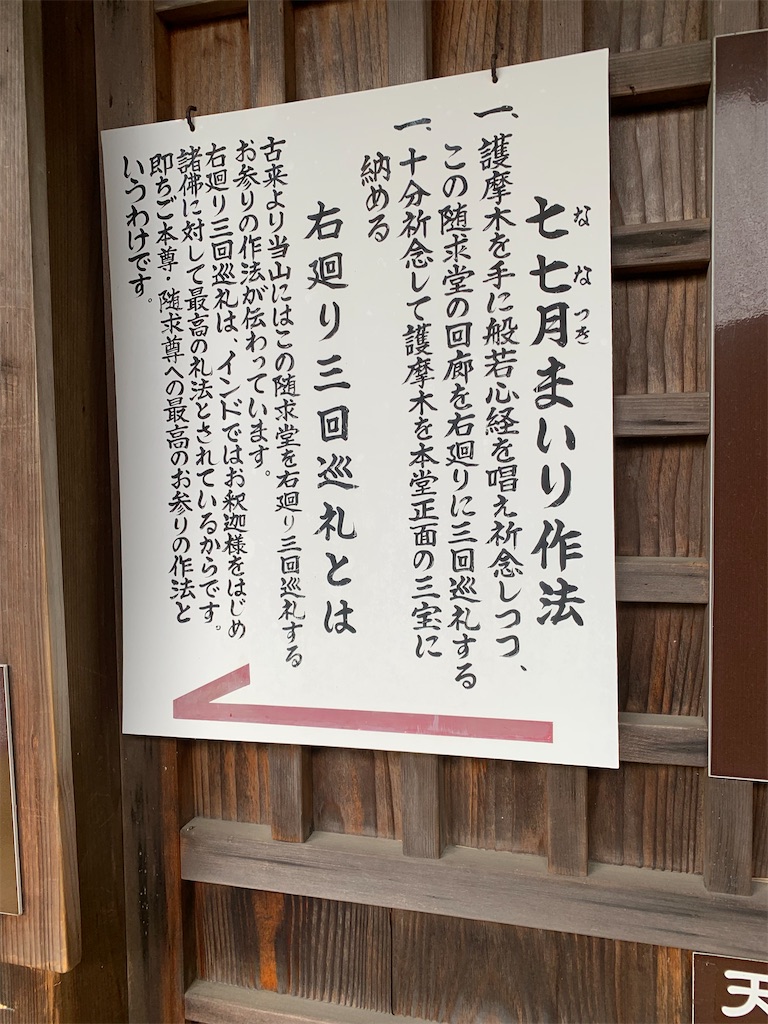 七七月まいり作法
なな つき
一、護摩木を手に般若心経を唱え祈念しつつ、
この随求堂の回廊を右廻りに三回巡礼する
一、十分祈念して護摩木を本堂正面の三宝に
納める
右廻り三回巡礼とは
古来より当山にはこの随求堂を右廻り三回巡礼する
お参りの作法が伝わっています。
右廻り三回巡礼は、インドではお釈迦様をはじめ
諸佛に対して最高の礼法とされているからです。
即ちご本尊・随求尊への最高のお参りの作法と
いうわけです。
天